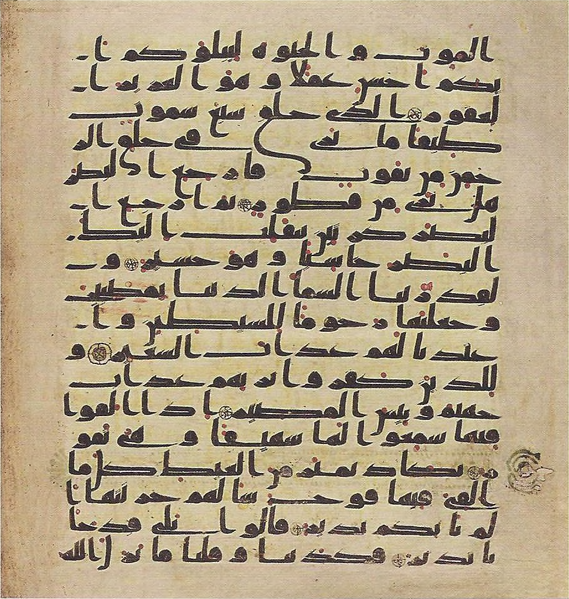 الموت والحيوة ليبلوكم ا
يكم احسن عملا وهو العزيز ا
لغفور الذي خلق سبع سموت
طباقا ما ترى في خلق الر
حمن من تفوت فارجع البصر
هل ترى من فطور ثم ارجع ا
لبصر كرتين ينقلب اليك
البصر خاسئا وهو حسير و
لقد زينا السما الدنيا بمصبيح
وجعلنها رجوما للشيطين وا
عتدنا لهم عذاب السعير و
للذين كفروا بربهم عذاب
جهنم وبئس المصير اذا القوا
فيها سمعوا لها شهيقا وهي تفو
ر تكاد تميز من الغيظ كلما
القي فيها فوج سالهم خزنتها ا
لم ياتكم نذير قالوا بلى قد جا
نا نذير فكذبنا وقلنا ما نزل الله